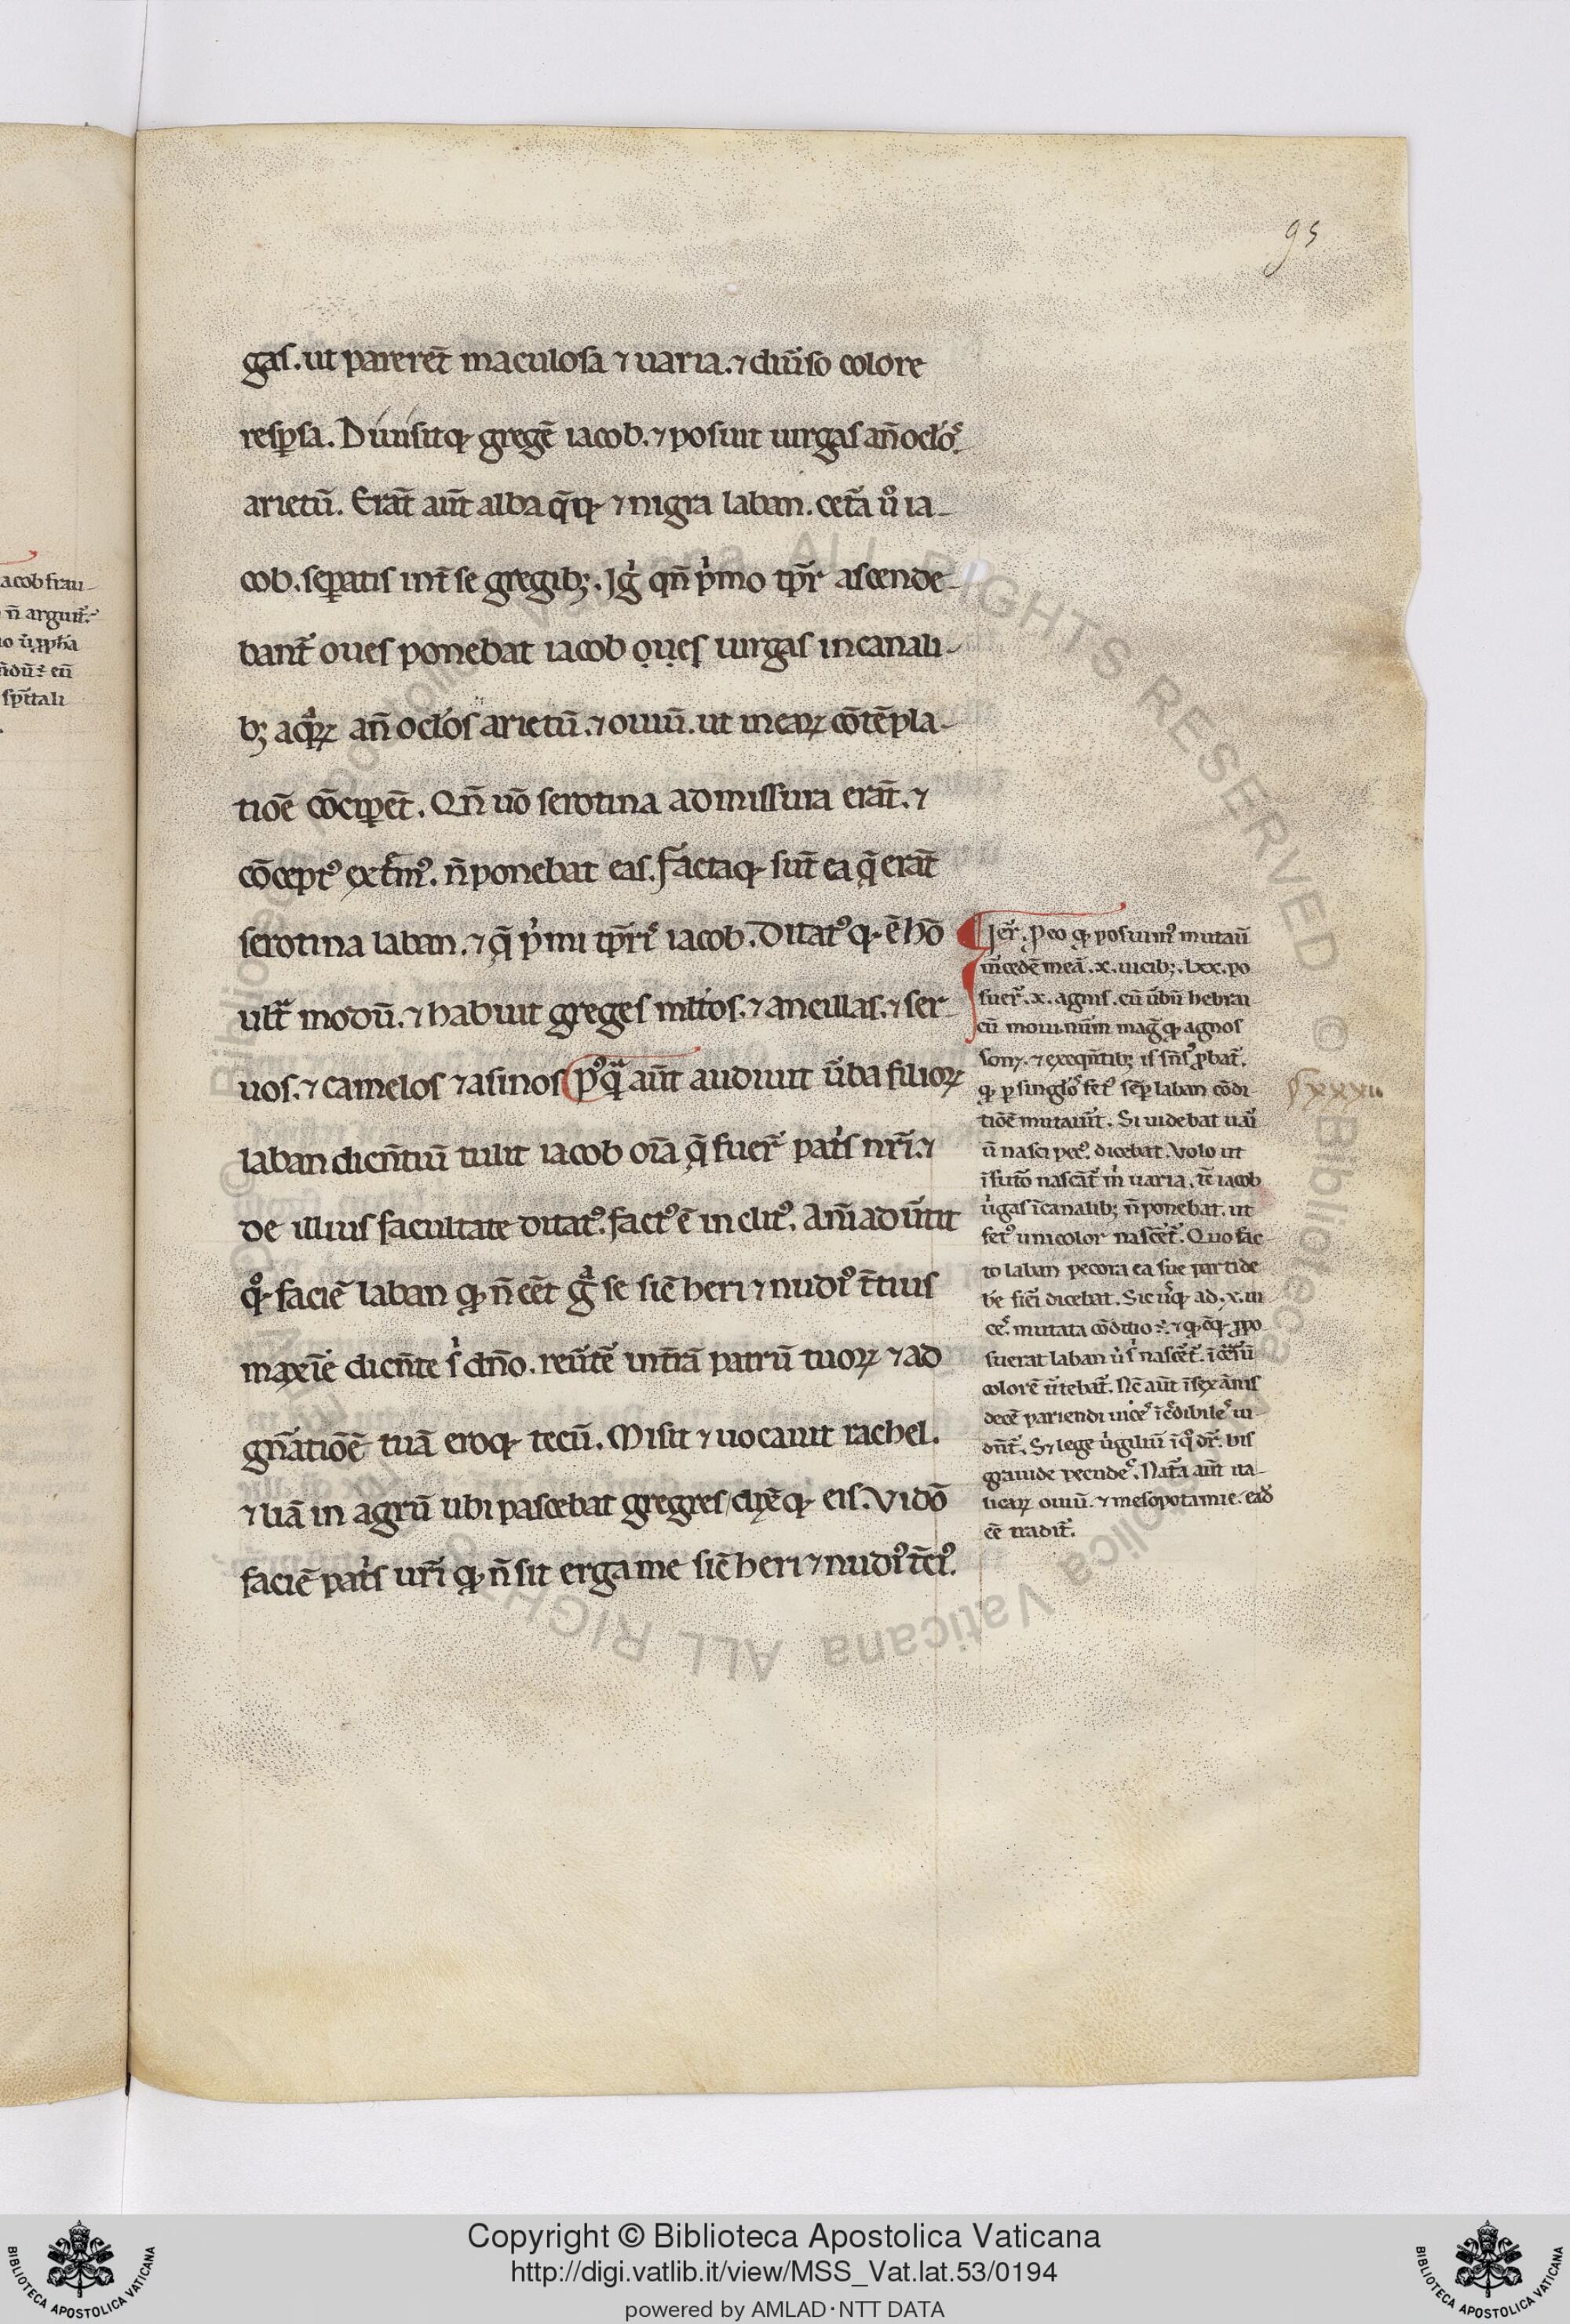 95
gas. ut pareret̄ maculosa ⁊ uaria. ⁊ diu͛so colore
resꝑsa. Diuisitq; gregē iacob. ⁊ posuit uirgas an̄ oclo͛s
arietū. Erāt aūt alba q̄q; ⁊ nigra laban. cet͛a u͛o ia-
cob. seꝑatis int̄ se gregib;. Igͥ qn̄ pͥmo tp̄r ascende-
bant͛ oues ponebat iacob oues uirgas in canali-
b; aqͣꝝ an̄ oclo͛s arietū. ⁊ ouiū. ut in eaꝝ cōtēpla-
tiōe cōciꝑēt. Qn̄ uō serotina admissura erāt. ⁊
cōceptꝰ ext͛mꝰ. n̄ ponebat eas. factaq; sūt ea q̄ erāt
serotina laban. ⁊ q̄ pͥmi tp̄rꝭ iacob. Ditatꝰ q; ē hō
ult͛ modū. ⁊ habuit greges mltos. ⁊ ancillas. ⁊ ser-
uos. ⁊ camelos ⁊ asinos pꝰqͣ aūt audiuit u͛ba filioꝝ
laban dicn̄tiū tulit iacob oīa q̄ fuer͛ patͥs nr̄i. ⁊
de illius facultate ditatꝰ. factꝰ ē in clitꝰ. Anīad u͛tit
qͦq; faciē laban qꝫ n̄ eēt gͣ se sic̄ heri ⁊ nudiꝰ t̄tius
maxīe dicn̄te sͥ dn̄o. reu͛tē̄ in t̄rā patrū tuoꝝ ⁊ ad
gn̄atiōē tuā eroq; tecū. Misit ⁊ uocauit rachel.
⁊ liā in agrū ubi pascebat gregres / dixͤq; eis. Vidō
faciē patͥs ur̄i qꝫ n̄ sit erga me sic̄ heri ⁊ nudiꝰ t̄ciꝰ.
Ier͛. ꝓ eo qꝫ posuimꝰ mutaū
m͛cedē meā. x. uicib;. lxx. po
suer͛. x. agnis. cū u͛bū hebrai
cū moni. nu͛m mag̃ qꝫ agnos
sonꝫ. ⁊ exeqn̄tib; is sn̄sꝰ ꝓbat͛.
qꝫ ꝑ singlo͛s fetꝰ seꝑ laban cōdi
tiōē mutau͛it. Si uidebat uai͛
ū nasci pecꝰ. dicebat. Volo ut
ī fut͛o nascāt͛ mͥ uaria. tē iacob
uͥgas ī canalib; n̄ ponebat. ut
fetꝰ unicolor nascēt͛. Quo fac
to laban pecora ea sue parti de
b͛e fieri dicebat. Sic u͛qꝫ ad. x. ui
ce͛s. mutata cōditio ē. ⁊ qꝫ cͣqꝫ ꝓpo
suerat laban uͥ sͥ nascēt͛. ī cͣriū
colorē u͛tebat͛. Nc̄ aūt ī sex ānis
decē pariendi uice͛s īcͤdibile͛s ui
dn̄t͛. Sꝫ lege uͥgiliū ī qͦ dr̄. bis
grauide pecude͛s. Nat͛a aūt ita-
licaꝝ ouiū. ⁊ mesopotamie. ead͛
eē tradit͛.
xxxii.
acob frau-
n̄ arguit͛.
spr̄itali
Copyright © Biblioteca Apostolica Vaticana
http://digi.vatlib.it/view/MSS_Vat.lat.53/0194
powered by AMLAD·NTT DATA
BIBLIOTECA APOSTOLICA VATICANA
BIBLIOTECA APOSTOLICA VATICANA